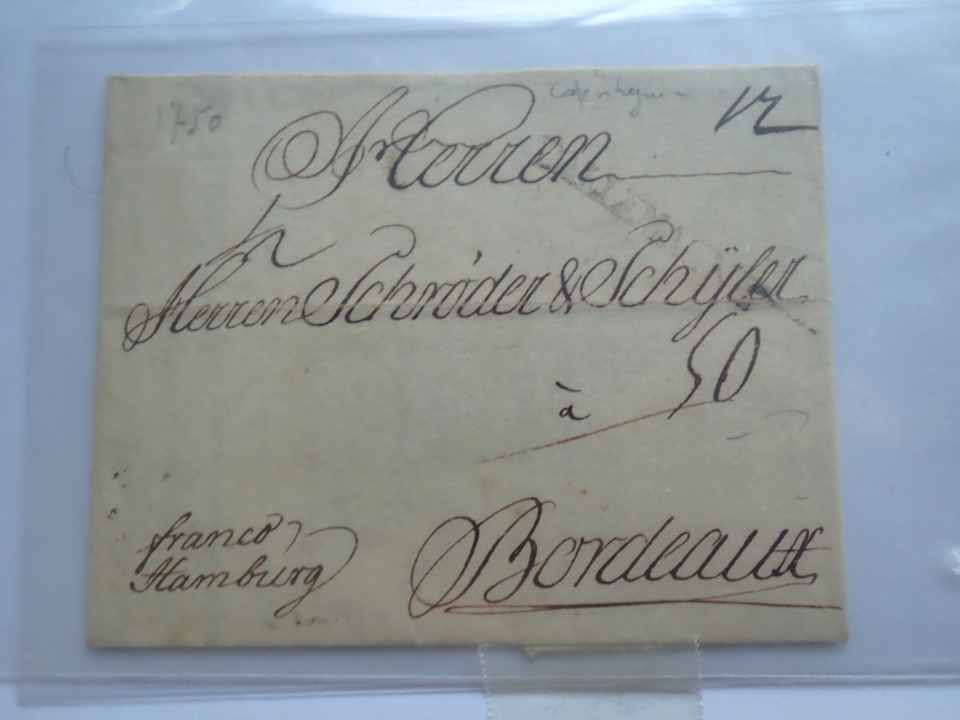 1750
Copenhagen
12
Herren
Herren Schrøder & Schÿler
50
à
franco
Hamburg
Bordeaux